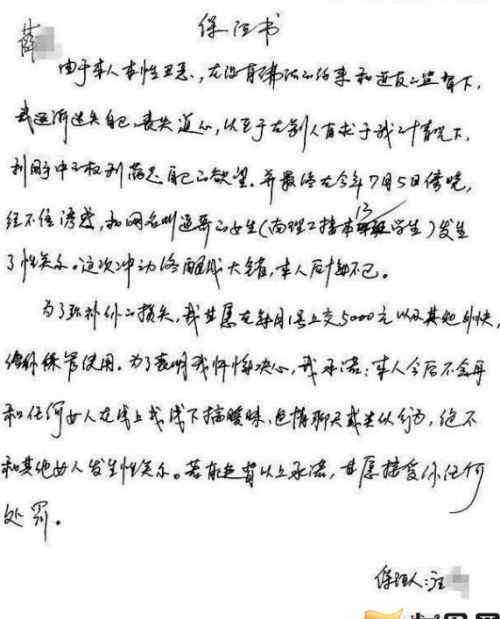 保证书
薛
由于本人本性丑恶，在没有强力的约束和道友的监督下，
我逐渐迷失自己，丧失道心，以至于在别人有求于我的情况下，
利用手中的权利满足自己的欲望。并最终在今年7月5日傍晚，
经不住诱惑，和网名叫逍哥的女生（南理工接本13学生）发生
了性关系。这次冲动终酿成大错，本人后悔不已。
为了弥补你的损失，我甘愿在每月1号上交5000元以及其他外快，
给你保管使用。为了表明我忏悔决心，我承诺：本人今后不会再
和任何女人在线上或线下搞暧昧，色情聊天或类似行为，绝不
和其他女人发生性关系。若有违背以上承诺，甘愿接受你任何
处罚。
保证人：汪